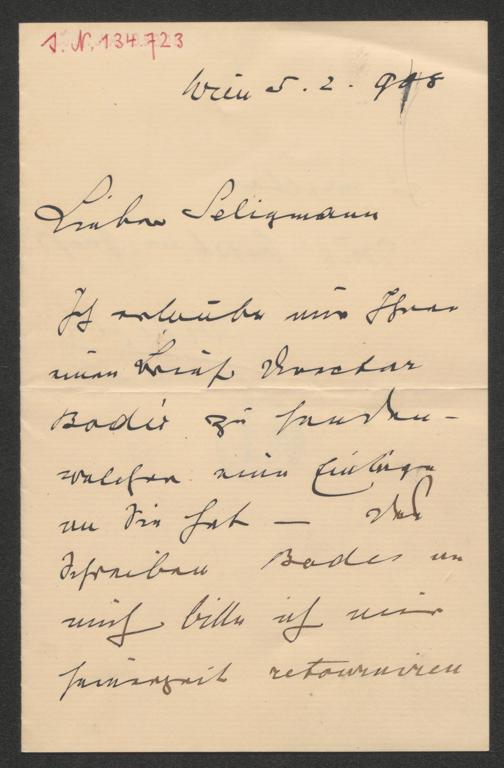 J. N. 134.723
Wien 5. 2. 908
Lieber Seligmann
Ich erlaube mir Ihnen
einen Brief Director
Bode's zu senden –
welcher eine Einlage
an Sie hat — Das
Schreiben Bodes an
mich bitte ich mir
seinerzeit retourniren